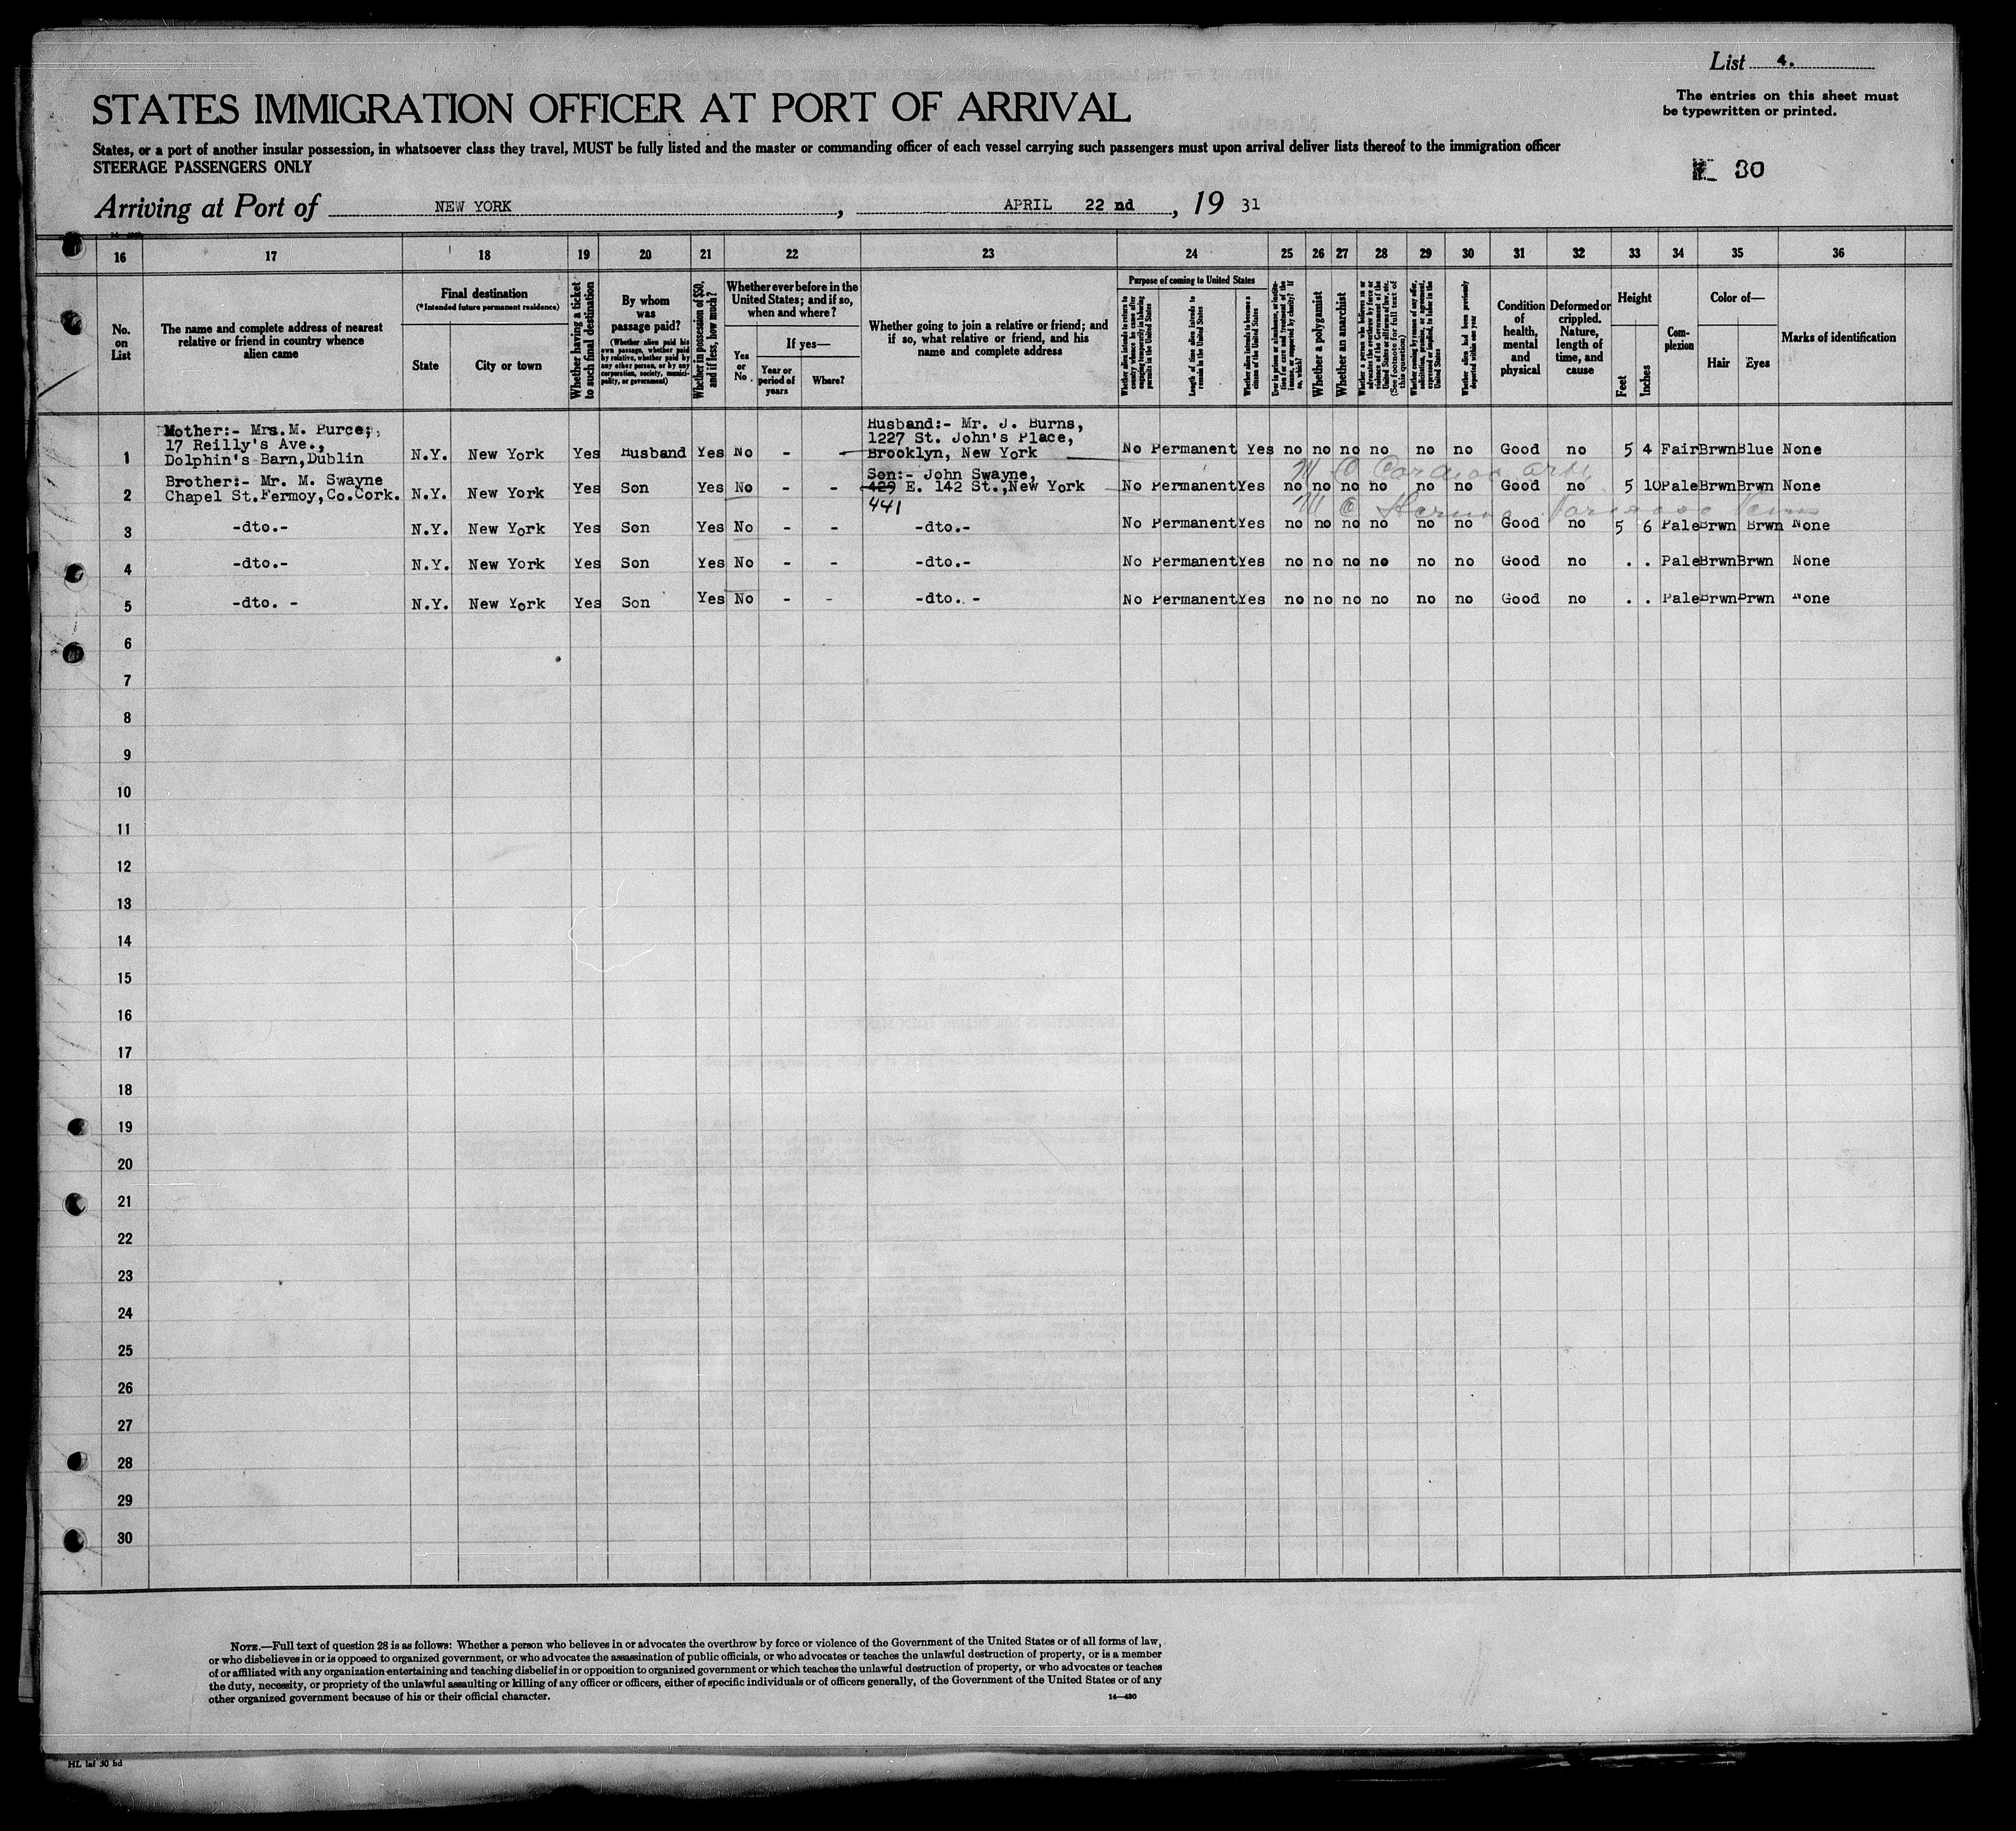 List 4.
The entries on this sheet must
be typewritten or printed.
STATES IMMIGRATION OFFICER AT PORT OF ARRIVAL
States, or a port of another insular possession, in whatsoever class they travel, MUST be fully listed and the master or commanding officer of each vessel carrying such passengers must upon arrival deliver lists thereof to the immigration officer
STEERAGE PASSENGERS ONLY
30
Arriving at Port of NEW YORK, APRIL 22 nd, 19 31
16 17 18 19 20 21 22 23 24 25 26 27 28 29 30 31 32 33 34 35 36
No. on List
The name and complete address of nearest relative or friend in country whence alien came
Final destination
(*Intended future permanent residence)
State
City or town
Whether having a ticket to such final destination
By whom was passage paid?
(Whether alien paid his own passage, whether paid by relative, whether paid by any other person, or by any corporation, society, municipality, or government)
Whether in possession of $50, and if less, how much?
Whether ever before in the United States; and if so, when and where?
Yes or No
If yes—
Year or period of years
Where?
Whether going to join a relative or friend; and if so, what relative or friend, and his name and complete address
Purpose of coming to United States
Length of time alien intends to remain in the United States
Whether alien intends to become a citizen of the United States
Whether a polygamist
Whether an anarchist
Whether alien had been previously deported within one year
Condition of health, mental and physical
Deformed or crippled. Nature, length of time, and cause
Height
Feet
Inches
Complexion
Color of—
Hair
Eyes
Marks of identification
Mother:- Mrs. M. Purce,
17 Reilly's Ave.,
1 Dolphin's Barn, Dublin N.Y. New York Yes Husband Yes No - -
Husband:- Mr. J. Burns,
1227 St. John's Place,
Brooklyn, New York No Permanent Yes no no no no no no Good no 5 4 Fair Brwn Blue None
Cardiac
Brother:- Mr. M. Swayne
2 Chapel St. Fermoy, Co. Cork. N.Y. New York Yes Son Yes No - -
Son:- John Swayne,
429 E. 142 St., New York No Permanent Yes no no no no no no Good no 5 10 Pale Brwn Brwn None
441
Hernia Varicose Veins
3 -dto.- N.Y. New York Yes Son Yes No - - -dto.- No Permanent Yes no no no no no no Good no 5 6 Pale Brwn Brwn None
4 -dto.- N.Y. New York Yes Son Yes No - - -dto.- No Permanent Yes no no no no no no Good no . . Pale Brwn Brwn None
5 -dto. - N.Y. New York Yes Son Yes No - - -dto. - No Permanent Yes no no no no no no Good no . . Pale Brwn Brwn None
6
7
8
9
10
11
12
13
14
15
16
17
18
19
20
21
22
23
24
25
26
27
28
29
30
NOTE.—Full text of question 28 is as follows: Whether a person who believes in or advocates the overthrow by force or violence of the Government of the United States or of all forms of law,
or who disbelieves in or is opposed to organized government, or who advocates the assassination of public officials, or who advocates or teaches the unlawful destruction of property, or is a member
of or affiliated with any organization entertaining and teaching disbelief in or opposition to organized government or which teaches the unlawful destruction of property, or who advocates or teaches
the duty, necessity, or propriety of the unlawful assaulting or killing of any officer or officers, either of specific individuals or of officers generally, of the Government of the United States or of any
other organized government because of his or their official character.
14—430